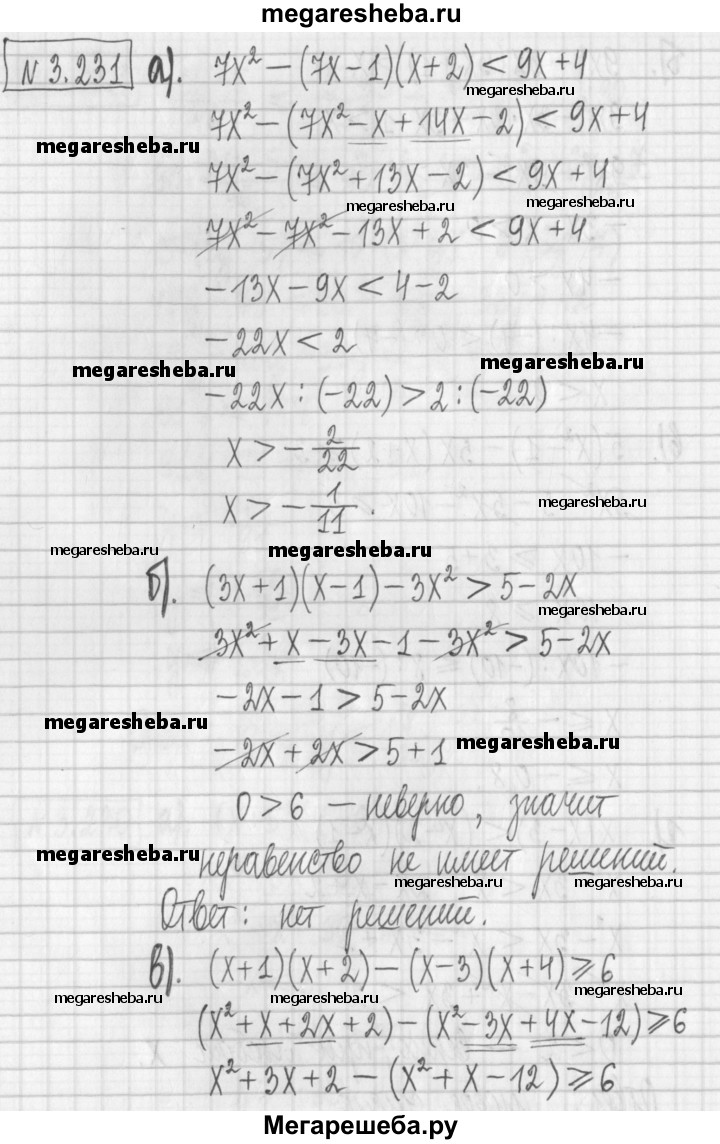 megaresheba.ru
N 3.231 а). 7x² – (7x – 1)(x + 2) < 9x + 4
megaresheba.ru
7x² – (7x² – x + 14x – 2) < 9x + 4
megaresheba.ru
7x² – (7x² + 13x – 2) < 9x + 4
megaresheba.ru megaresheba.ru
7x² – 7x² – 13x + 2 < 9x + 4
– 13x – 9x < 4 – 2
– 22x < 2
megaresheba.ru megaresheba.ru
– 22x : (–22) > 2 : (–22)
x > – 2/22
x > – 1/11.
megaresheba.ru
megaresheba.ru megaresheba.ru
б). (3x + 1)(x – 1) – 3x² > 5 – 2x
megaresheba.ru
3x² + x – 3x – 1 – 3x² > 5 – 2x
– 2x – 1 > 5 – 2x
megaresheba.ru
– 2x + 2x > 5 + 1
megaresheba.ru
0 > 6 – неверно, значит
megaresheba.ru
неравенство не имеет решений.
megaresheba.ru megaresheba.ru
Ответ: нет решений.
в). (x + 1)(x + 2) – (x – 3)(x + 4) ⩾ 6
megaresheba.ru megaresheba.ru megaresheba.ru
(x² + x + 2x + 2) – (x² – 3x + 4x – 12) ⩾ 6
x² + 3x + 2 – (x² + x – 12) ⩾ 6
Мегарешеба.ру